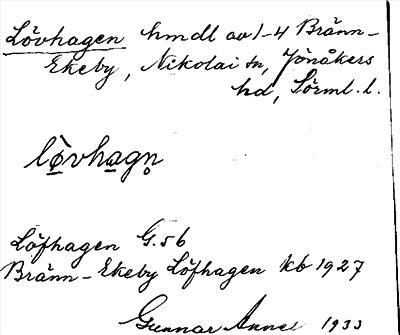 Lövhagen hmdl av 1-4 Bränn-
Ekeby, Nikolai sn, Jönåkers
hd, Sörml. l.
lö̀vhagn̥
Löfhagen G. 56
Bränn-Ekeby Löfhagen kb 1927
Gunnar 1933